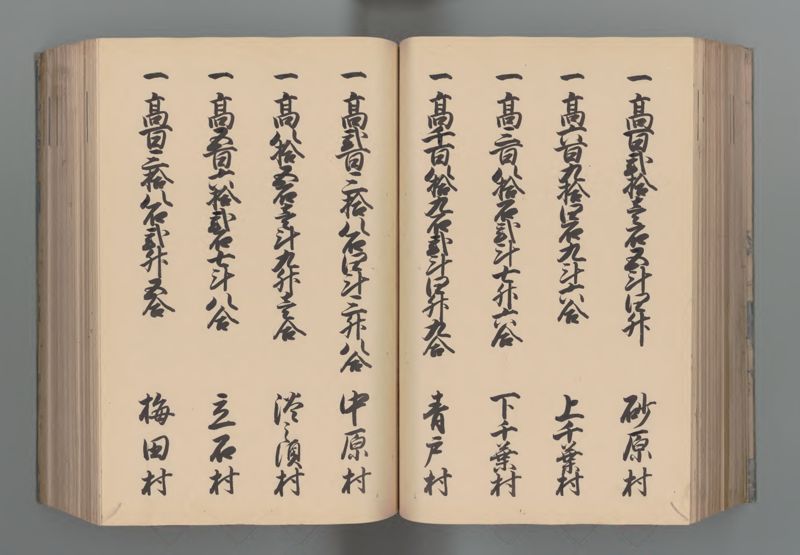 一高百弐拾壱石五斗四升 砂原村
一高六百九拾四石九斗六合 上千葉村
一高三百八拾石弐斗七升六合 下千葉村
一高千百八拾九石弐斗四升九合 青戸村
一高弐百三拾八石四斗三升八合 中原村
一高八拾五石壱斗九升壱合 淡之須村
一高五百六拾弐石七斗八合 立石村
一高百三拾八石弐升五合 梅田村